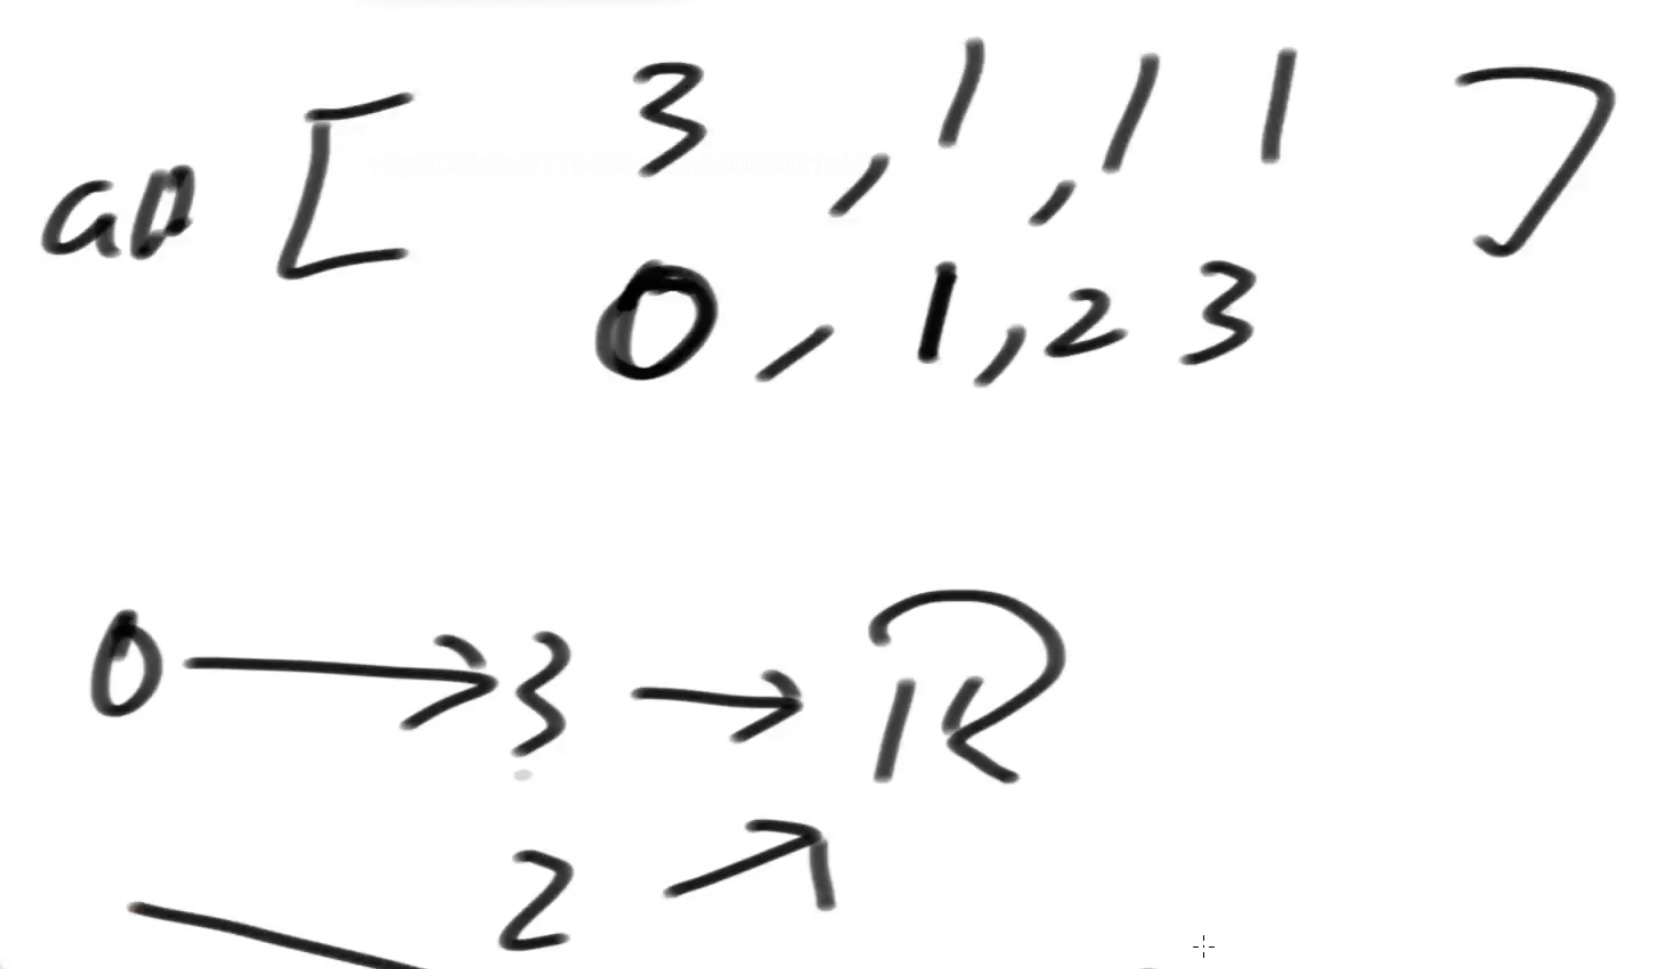 [ 3 , 1 , 1 1 ]
0 , 1 , 2 3
0 → 3 → R
2